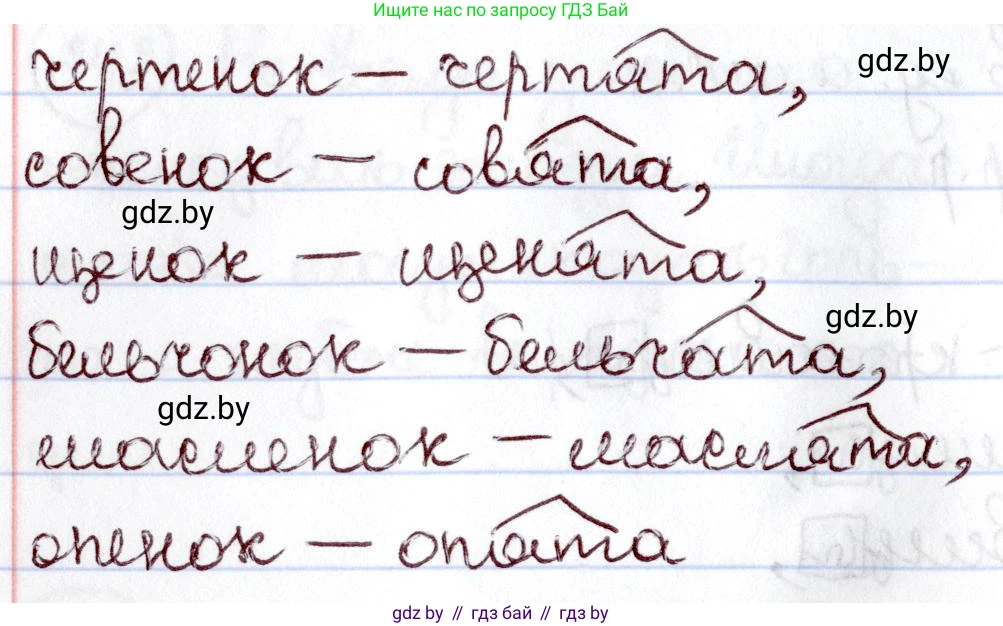 Ищите нас по запросу ГДЗ Бай
чертенок – чертята,
gdz.by
совенок – совята,
gdz.by
щенок – щенята,
gdz.by
бельчонок – бельчата,
gdz.by
масленок – маслята,
опенок – опята
gdz.by // гдз бай // гдз by